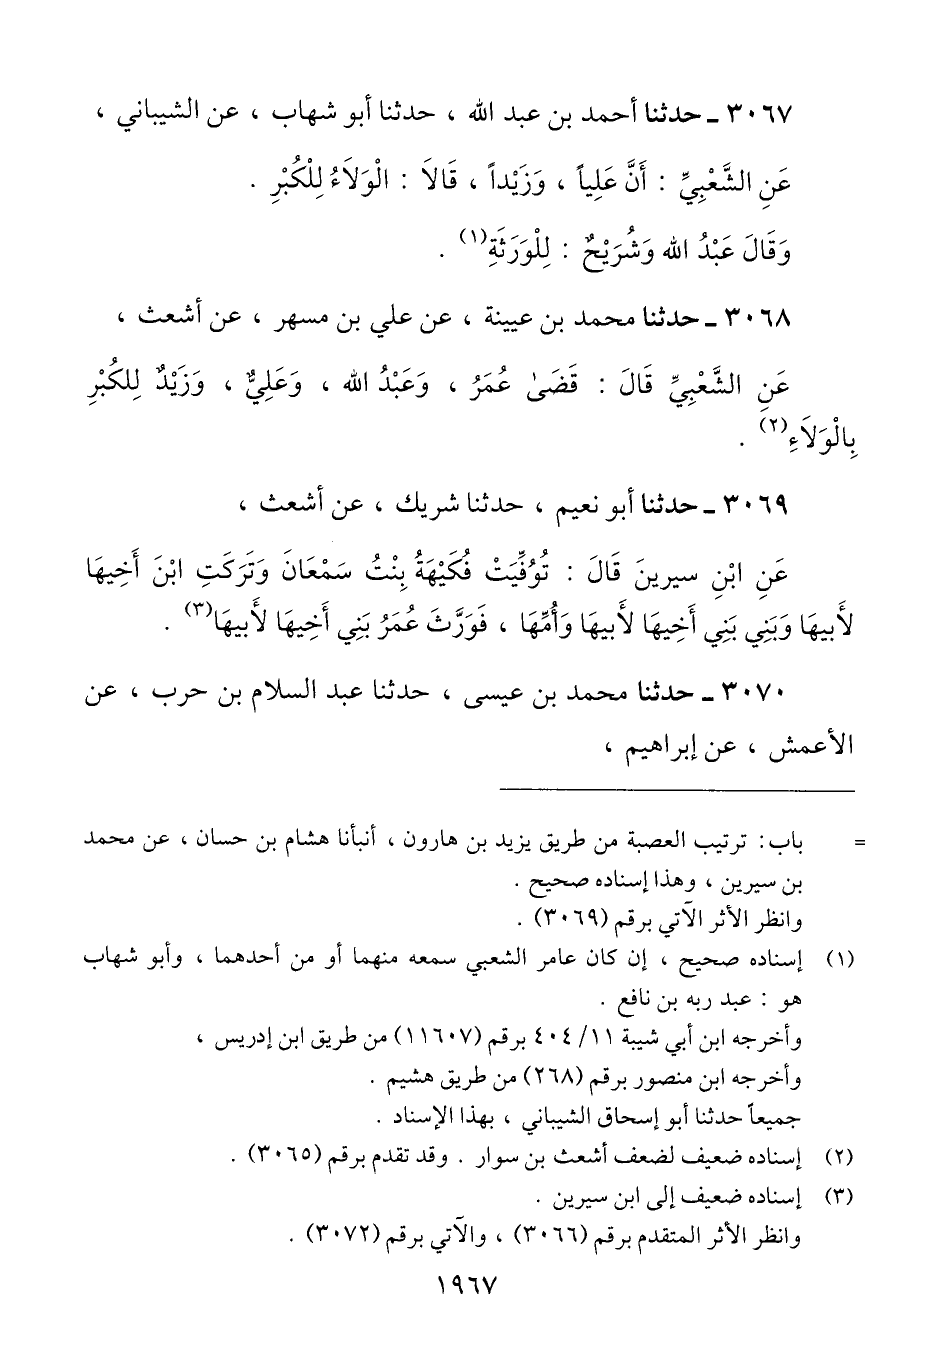 ٣٠٦٧ ـ حدثنا أحمد بن عبد الله ، حدثنا أبو شهاب ، عن الشيباني ،
عَنِ الشَّعْبِيِّ : أَنَّ عَلِياً ، وَزَيْداً ، قَالَا : الْوَلَاءُ لِلْكُبْرِ .
وَقَالَ عَبْدُ الله وَشُرَيْحٌ : لِلْوَرَثَةِ(١) .
٣٠٦٨ ـ حدثنا محمد بن عيينة ، عن علي بن مسهر ، عن أشعث ،
عَنِ الشَّعْبِيِّ قَالَ : قَضَىٰ عُمَرُ ، وَعَبْدُ الله ، وَعَلِيٌّ ، وَزَيْدٌ لِلكُبْرِ
بِالْوَلَاءِ(٢) .
٣٠٦٩ ـ حدثنا أبو نعيم ، حدثنا شريك ، عن أشعث ،
عَنِ ابْنِ سيرينَ قَالَ : تُوُفِّيَتْ فُكَيْهَةُ بِنْتُ سَمْعَانَ وَتَرَكَتِ ابْنَ أَخِيهَا
لأَبيهَا وَبَنِي بَنِي أَخِيهَا لأَبيهَا وَأُمِّهَا ، فَوَرَّثَ عُمَرُ بَنِي أَخِيهَا لأَبيهَا(٣) .
٣٠٧٠ ـ حدثنا محمد بن عيسى ، حدثنا عبد السلام بن حرب ، عن
الأعمش ، عن إبراهيم ،
= باب: ترتيب العصبة من طريق يزيد بن هارون ، أنبأنا هشام بن حسان ، عن محمد
بن سيرين ، وهذا إسناده صحيح .
وانظر الأثر الآتي برقم (٣٠٦٩) .
(١) إسناده صحيح ، إن كان عامر الشعبي سمعه منهما أو من أحدهما ، وأبو شهاب
هو : عبد ربه بن نافع .
وأخرجه ابن أبي شيبة ١١/ ٤٠٤ برقم (١١٦٠٧) من طريق ابن إدريس ،
وأخرجه ابن منصور برقم (٢٦٨) من طريق هشيم .
جميعاً حدثنا أبو إسحاق الشيباني ، بهذا الإسناد .
(٢) إسناده ضعيف لضعف أشعث بن سوار . وقد تقدم برقم (٣٠٦٥) .
(٣) إسناده ضعيف إلى ابن سيرين .
وانظر الأثر المتقدم برقم (٣٠٦٦) ، والآتي برقم (٣٠٧٢) .
١٩٦٧